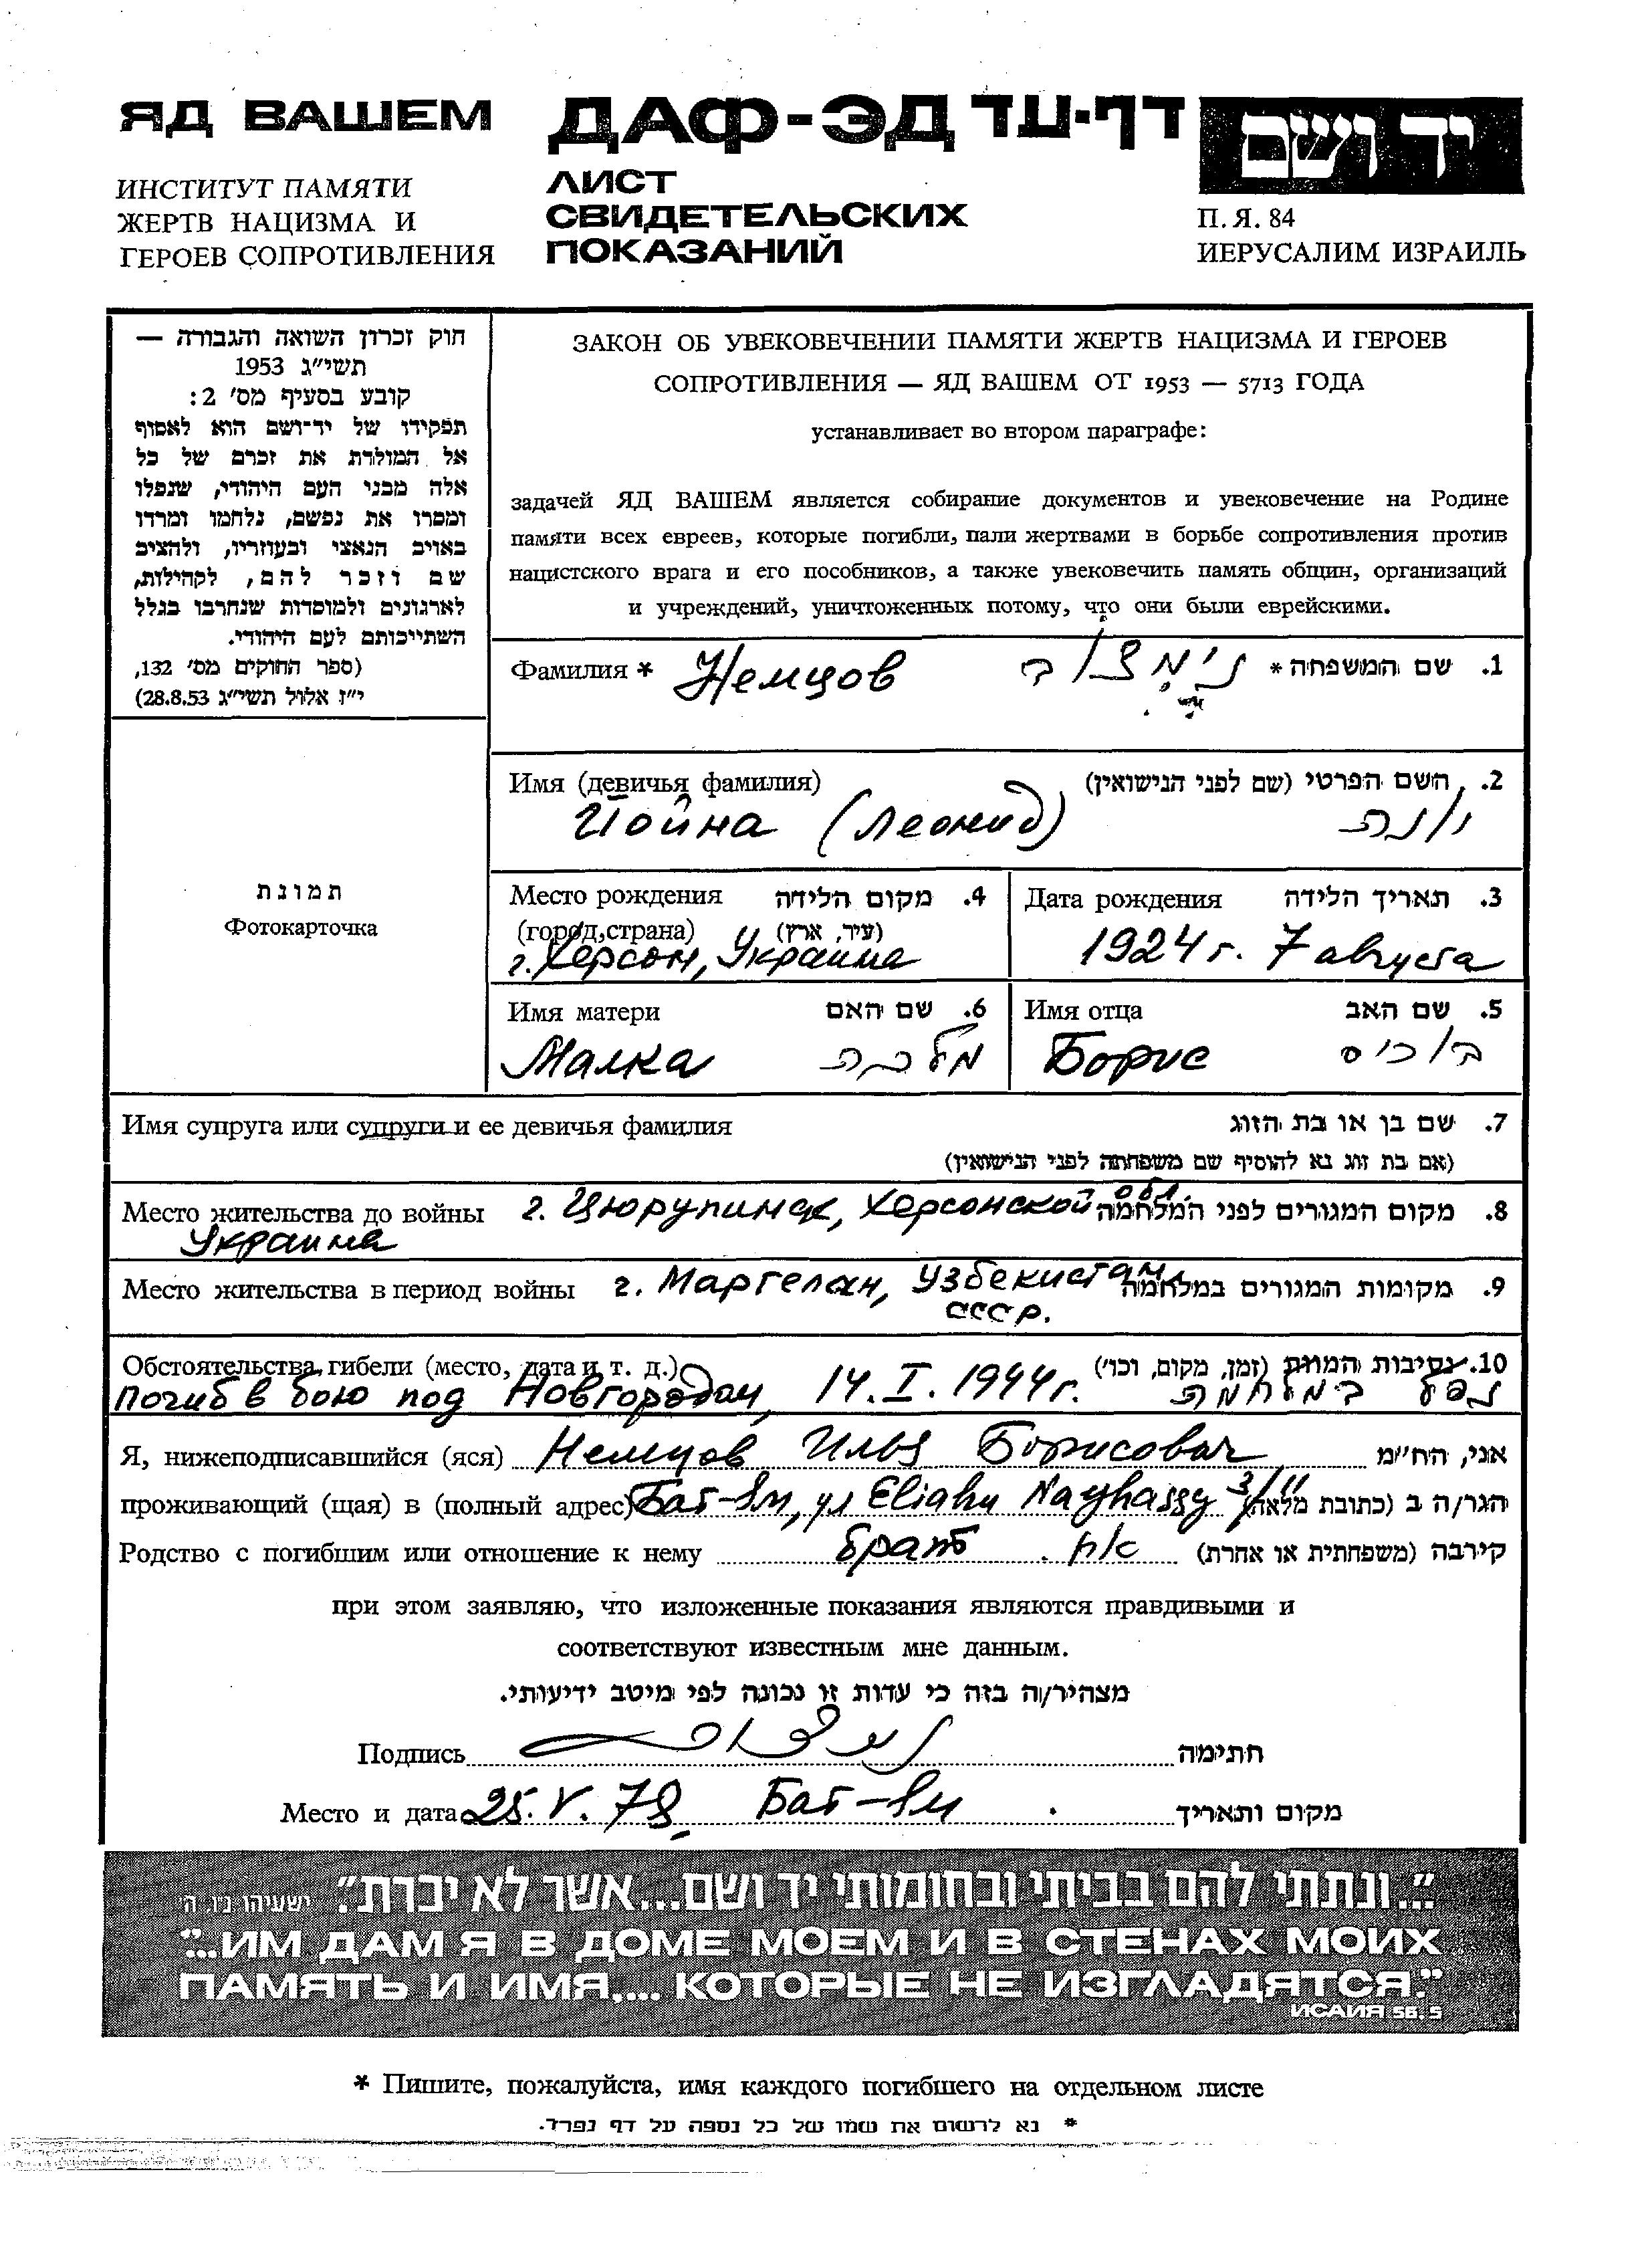 ЯД ВАШЕМ
ИНСТИТУТ ПАМЯТИ
ЖЕРТВ НАЦИЗМА И
ГЕРОЕВ СОПРОТИВЛЕНИЯ
ДАФ-ЭД דף-עד
ЛИСТ
СВИДЕТЕЛЬСКИХ
ПОКАЗАНИЙ
יד ושם
П. Я. 84
ИЕРУСАЛИМ ИЗРАИЛЬ
חוק זכרון השואה והגבורה —
תשי"ג 1953
קובע בסעיף מס' 2:
תפקידו של יד-ושם הוא לאסוף
אל המולדת את זכרם של כל
אלה מבני העם היהודי, שנפלו
ומסרו את נפשם, נלחמו ומרדו
באויב הנאצי ובעוזריו, ולהציב
שם וזכר להם, לקהילות,
לארגונים ולמוסדות שנחרבו בגלל
השתייכותם לעם היהודי.
(ספר החוקים מס' 132,
י"ז אלול תשי"ג 28.8.53)
ЗАКОН ОБ УВЕКОВЕЧЕНИИ ПАМЯТИ ЖЕРТВ НАЦИЗМА И ГЕРОЕВ
СОПРОТИВЛЕНИЯ — ЯД ВАШЕМ ОТ 1953 — 5713 ГОДА
устанавливает во втором параграфе:
задачей ЯД ВАШЕМ является собирание документов и увековечение на Родине
памяти всех евреев, которые погибли, пали жертвами в борьбе сопротивления против
нацистского врага и его пособников, а также увековечить память общин, организаций
и учреждений, уничтоженных потому, что они были еврейскими.
Фамилия * Немцов נימצוב 1. שם המשפחה *
Имя (девичья фамилия) 2. השם הפרטי (שם לפני הנישואין)
Йойна (Леонид) יונה
תמונת
Фотокарточка
Место рождения 4. מקום הלידה
(город,страна) (עיר, ארץ)
г. Херсон, Украина
Дата рождения 3. תאריך הלידה
1924 г. 7 августа
Имя матери 6. שם האם
Малка מלכה
Имя отца 5. שם האב
Борис בוריס
Имя супруга или супруги и ее девичья фамилия 7. שם בן או בת הזוג
(אם בת זוג נא להוסיף שם משפחתה לפני הנישואין)
Место жительства до войны г. Цюрупинск, Херсонской обл. 8. מקום המגורים לפני המלחמה
Украина
Место жительства в период войны г. Маргелан, Узбекистан, 9. מקומות המגורים במלחמה
СССР.
Обстоятельства гибели (место, дата и т. д.) 10. נסיבות המוות (זמן, מקום, וכו')
Погиб в бою под Новгородом, 14.I.1944г. נפל במלחמה
Я, нижеподписавшийся (яся) Немцов Илья Борисович אני, הח"מ
проживающий (щая) в (полный адрес) Бат-Ям, ул Eliahu 3/11 הגר/ה ב (כתובת מלאה)
Родство с погибшим или отношение к нему брат אח קירבה (משפחתית או אחרת)
при этом заявляю, что изложенные показания являются правдивыми и
соответствуют известным мне данным.
מצהיר/ה בזה כי עדות זו נכונה לפי מיטב ידיעותי.
Подпись חתימה
Место и дата 25.V.78 Бат-Ям מקום ותאריך
"...ונתתי להם בביתי ובחומותי יד ושם...אשר לא יכרת". ישעיהו נ"ו, ה'
"...ИМ ДАМ Я В ДОМЕ МОЕМ И В СТЕНАХ МОИХ
ПАМЯТЬ И ИМЯ.... КОТОРЫЕ НЕ ИЗГЛАДЯТСЯ."
ИСАИЯ 56, 5
* Пишите, пожалуйста, имя каждого погибшего на отдельном листе
* נא לרשום את שמו של כל נספה על דף נפרד.